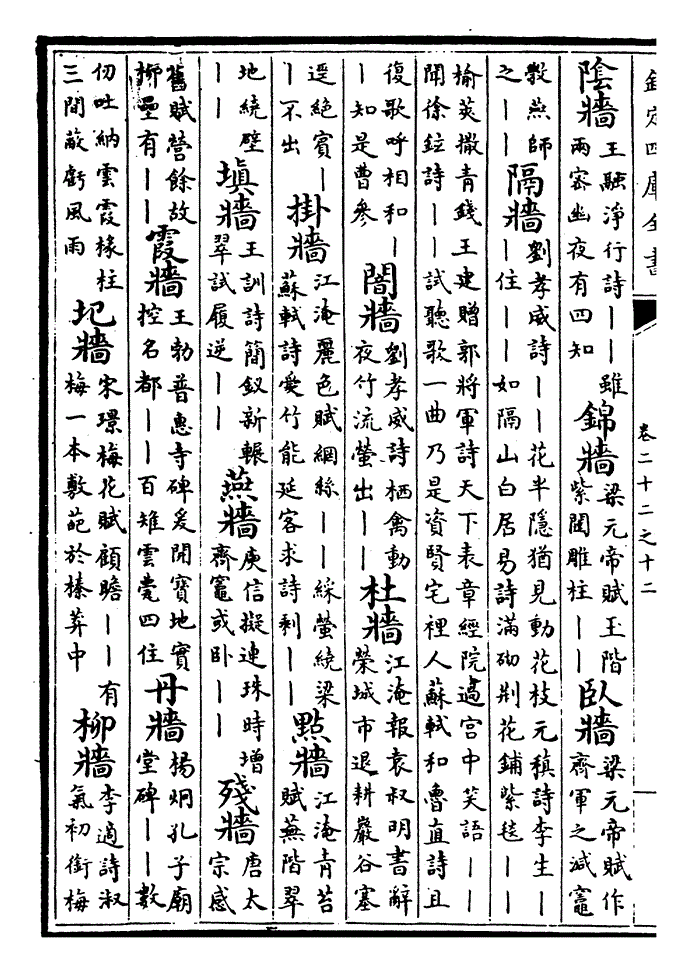 欽定四庫全書 卷二十二之十二
陰牆王融淨行詩——雖兩容幽夜有四知錦牆梁元帝賦玉階紫閣雕柱——臥牆梁元帝賦作齊軍之減竈
穀燕師之——隔牆劉孝威詩——花半隱猶見動花枝元稹詩李生——住——如隔山白居易詩滿砌荆花鋪紫毯——
榆莢撒青錢王建贈郭將軍詩天下表章經院過宮中笑語——聞徐鉉詩——試聽歌一曲乃是資賢宅裡人蘇軾和魯直詩且
復歌呼相和——知是曹參闇牆劉孝威詩栖禽動夜竹流螢出——杜牆江淹報袁叔明書辭榮城市退耕巖谷塞
逕絕賓——不出掛牆江淹麗色賦網絲——綵螢繞梁蘇軾詩愛竹能延客求詩剩——點牆江淹青苔賦蕪階翠
地繞壁——塡牆王訓詩簡釵新輾翠試履逆——燕牆庾信擬連珠時增齊竈或卧——殘牆唐太宗感
舊賦營餘故柳壘有——霞牆王勃普惠寺碑爰開寶地實控名都——百雉雲甍四住丹牆楊炯孔子廟堂碑——數
仞吐納雲霞椽柱三間蔽虧風雨圯牆宋璟梅花賦顧瞻——有梅一本敷葩於榛莽中柳牆李適詩淑氣初銜梅